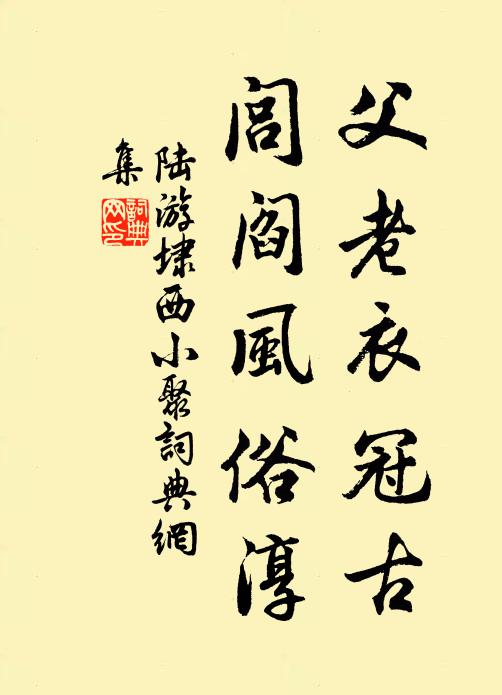 父老衣冠古
閭閻風俗淳
陸游埭西小聚詞典網
集
詞典
网印